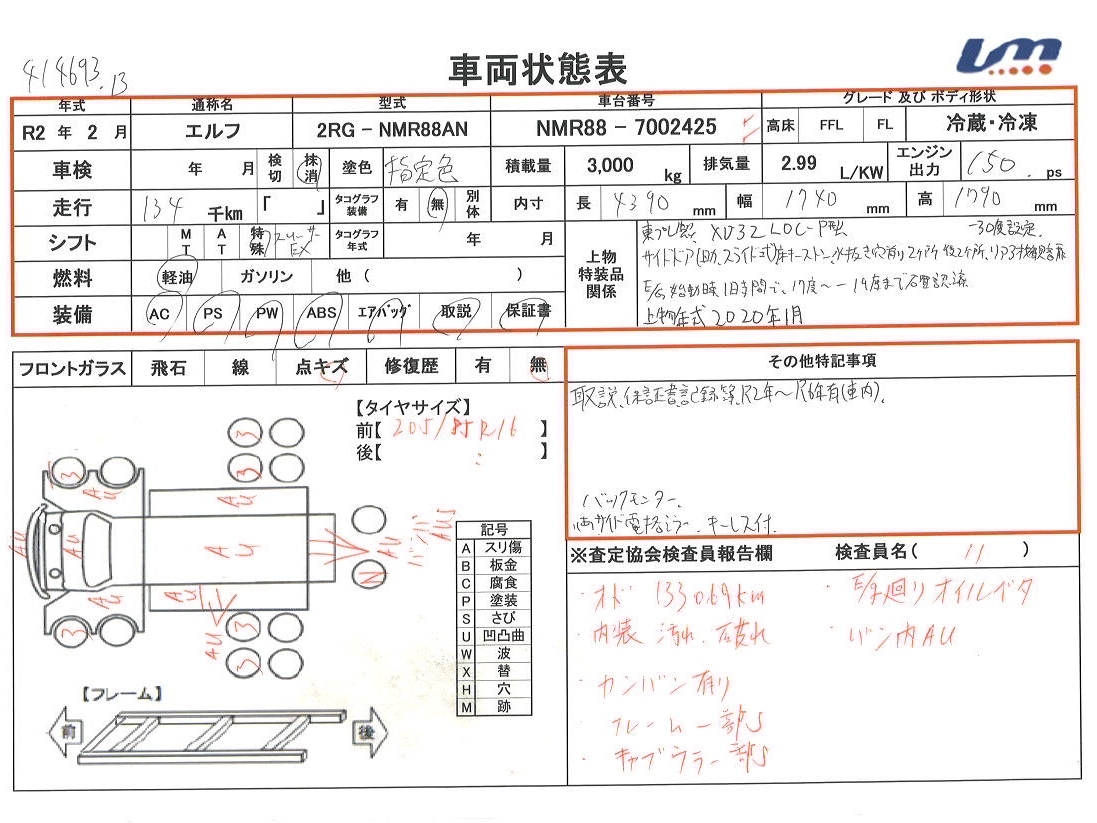 414693.13
車両状態表
年式 通称名 型式 車台番号 グレード 及び ボディ形状
R2 年 2 月 エルフ 2RG - NMR88AN NMR88 - 7002425 高床 FFL FL 冷蔵・冷凍
車検 年 月 検切 抹消 塗色 指定色 積載量 3,000 kg 排気量 2.99 L/KW エンジン出力 150 ps
走行 134 千km 「 」 タコグラフ装備 有 無 別体 内寸 長 4390 mm 幅 1740 mm 高 1790 mm
シフト MT AT 特殊 スムーサEX タコグラフ年式 年 月
燃料 軽油 ガソリン 他 ( )
装備 AC PS PW ABS エアバッグ 取説 保証書
上物特装品関係
東プレ製、XU32LOC-P型 -30度設定、
E/G始動時、1日時間で、17度〜-19度まで 確認済
上物年式 2020年1月
フロントガラス 飛石 線 点キズ 修復歴 有 無
その他特記事項
取説、保証書記録簿、R2年〜R6年有(車内)、
バックモニター、
両サイド電格ミラー、キーレス付、
【タイヤサイズ】
前【 205/85R16 】
後【 : 】
3 3 3 3 3 3
AU AU AU AU AU AU AU AU
N
記号
A スリ傷
B 板金
C 腐食
P 塗装
S さび
U 凹凸曲
W 波
X 替
H 穴
M 跡
【フレーム】
前 後
※査定協会検査員報告欄 検査員名( 11 )
・オド 133069km ・E/G廻りオイルベタ
・内装 汚れ、破れ ・バン内AU
・カンバン有り
・フレーム一部S
・キャブウラ一部S